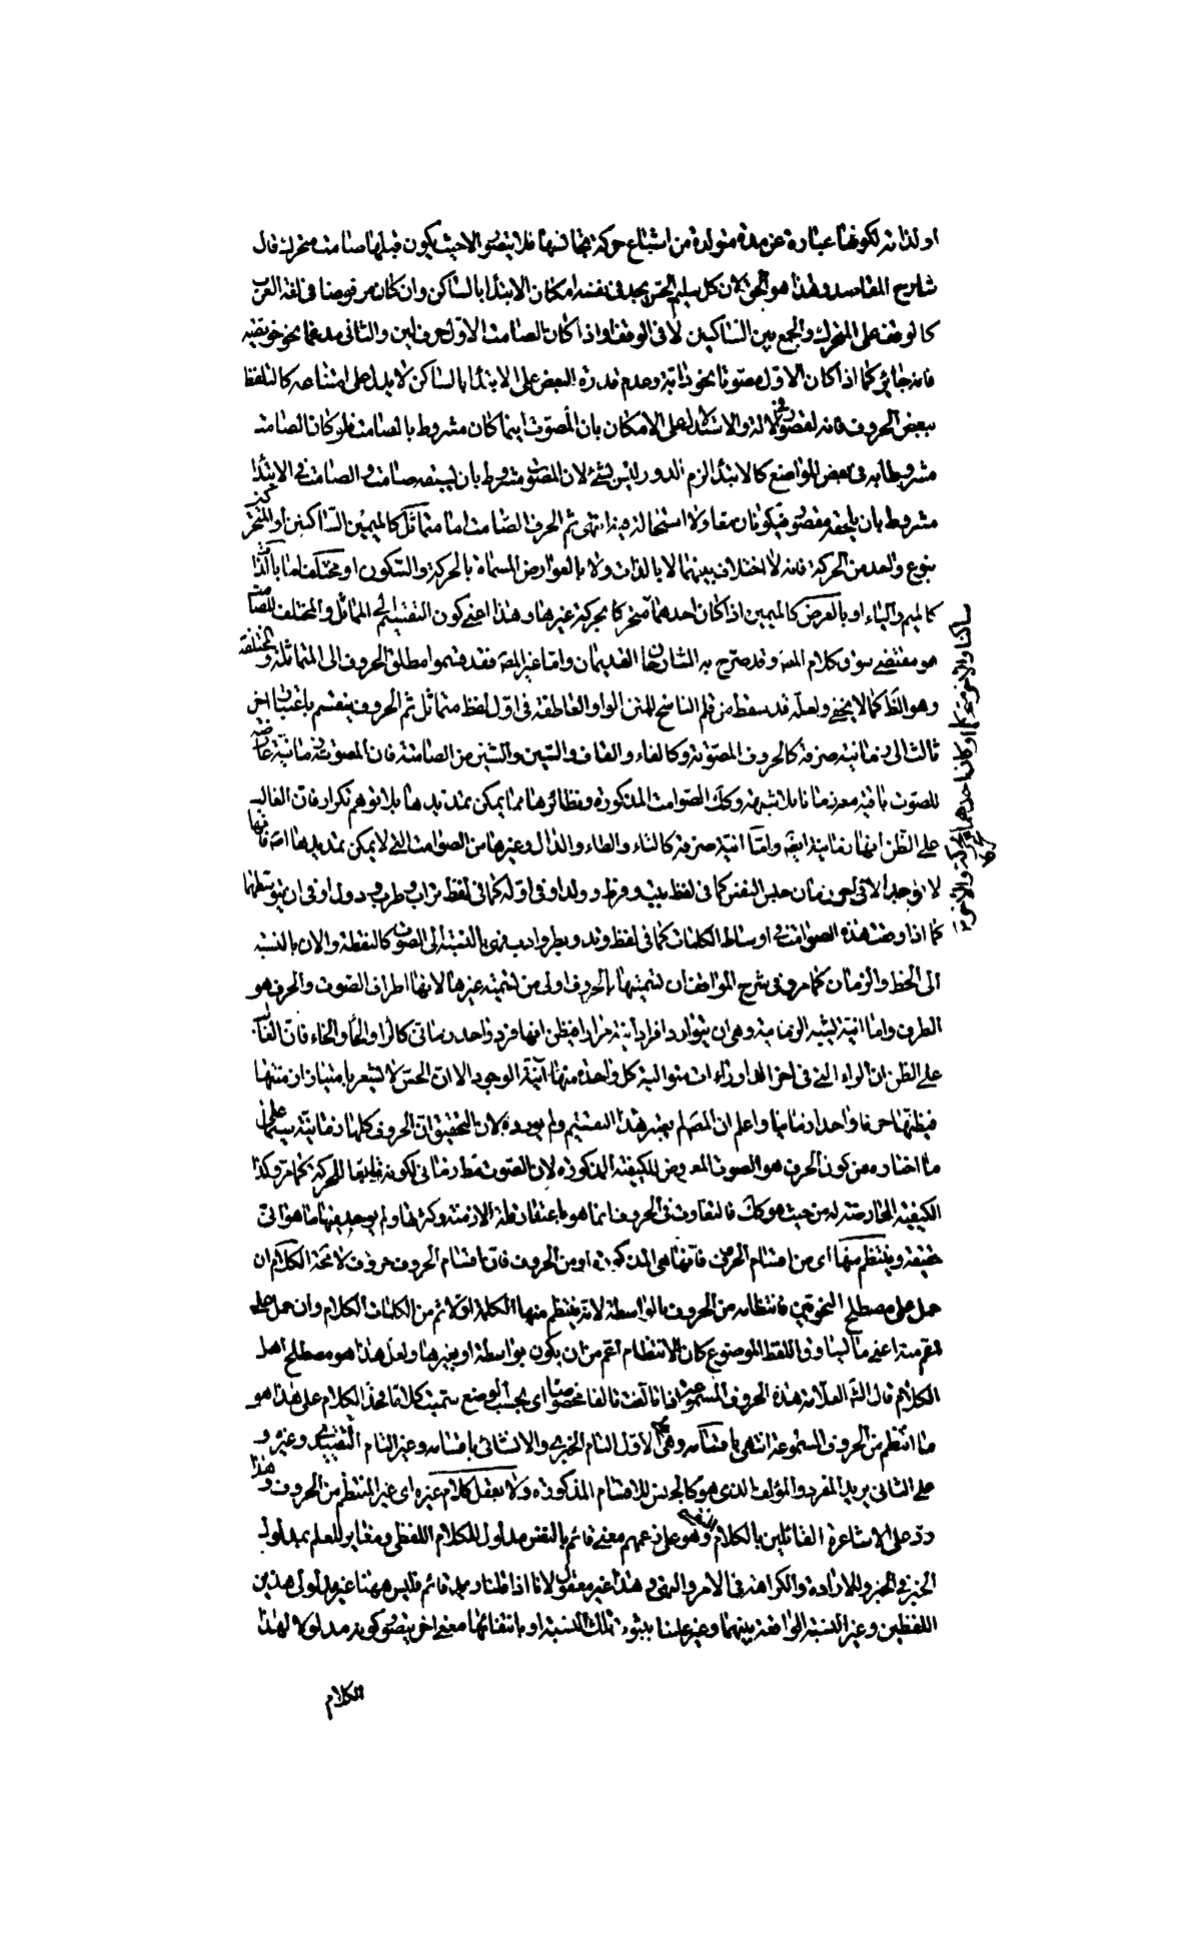 او لذاته لكونها عبارة عن مدة متولدة من اشباع حركة تجانسها فلا يتصور الا حيث يكون قبلها صامت متحرك قال
شارح المقاصد وهذا هو الحق لان كل سليم الحس يجد في نفسه امكان الابتدا بالساكن وان كان مرفوضا في لغة العرب
كالوقف على المتحرك والجمع بين الساكنين لا في الوقف او اذا كان الصامت الاول حرف لين والثاني مدغما نحو خويصة
فانه جايز كما اذا كان الاول مصوتا نحو دابة وعدم قدرة البعض على الابتدا بالساكن لا يدل على امتناعه كالتلفظ
ببعض الحروف فانه لقصور في الالة والاستدلال على الامكان بان المصوت اينما كان مشروط بالصامت فلو كان الصامت
مشروطا به في بعض المواضع كالابتدا لزم الدور ليس بشئ لان المصوت مشروط بان يسبقه صامت والصامت في الابتدا
مشروط بان يلحقه مصوت فيكونان معا ولا استحالة فيه انتهى ثم الحرف الصامت اما متماثل كالميمين الساكنين او المتحركين
بنوع واحد من الحركة فانه لا اختلاف بينهما لا بالذات ولا بالعوارض المسماة بالحركة والسكون او مختلف اما بالذات
كالميم والياء او بالعرض كالميمين اذا كان احدهما متحركا بحركة غيرها وهذا اعني كون التقسيم الى المماثل والمختلف للصامت
هو مقتضى سوق كلام المصه وقد صرح به الشارحان القديمان واما غير المصه فقد قسموا مطلق الحروف الى المتماثلة والمختلفة
وهو الظ كما لا يخفى ولعله قد سقط من قلم الناسخ للمتن الواو العاطفة في اول لفظ متماثل ثم الحروف ينقسم باعتبار اخر
ثالث الى زمانية صرفة كالحروف المصوتة وكالفاء والقاف والسين والشين من الصامتة فان المصوتة زمانية عارضة
للصوت باقية معه زمانا بلا شبهة وكك الصوامت المذكورة ونظائرها مما يمكن تمديدها بلا توهم تكرار فان الغالب
على الظن انها زمانية ايضه واما آنية صرفة كالتاء والطاء والدال وغيرها من الصوامت التي لا يمكن تمديدها اصه فانها
لا يوجد الا في اخر زمان حبس النفس كما في لفظ بيت وفرط وولد او في اوله كما في لفظ تراب وطرب ودول او في ان يتوسطهما
كما اذا وقعت هذه الصوامت في اوساط الكلمات كما في لفظ وتد وبطر وادب فهي بالنسبة الى الصوت كالنقطة والان بالنسبة
الى الخط والزمان كما مر وفي شرح المواقف ان تسميتها بالحروف اولى من تسمية غيرها لانها اطراف الصوت والحرف هو
الطرف واما آنية تشبه الزمانية وهي ان يتوارد افراد آنية مرارا فيظن انها فرد واحد زماني كالرا والحا والخاء فان الغالب
على الظن ان الراء التي في اخر الدار راءات متوالية كل واحدة منها آنية الوجود الا ان الحس لا يشعر بامتياز ازمنتها
فيظنها حرفا واحدا زمانيا واعلم ان المصه لم يعتبر هذا التقسيم ولم يورده لان التحقيق ان الحروف كلها زمانية سيما على
ما اختاره من كون الحرف هو الصوت المعروض للكيفية المذكورة لان الصوت قط زماني لكونه تابعا للحركة كما مر وكذا
الكيفية العارضة له من حيث هو كك فالتفاوت في الحروف انما هو باعتبار قلة الازمنة وكثرتها ولم يوجد فيها ما هو اني
حقيقة وينتظم منها اى من اقسام الحروف فانها هي المذكورة او من الحروف فان اقسام الحروف حروف لا محة الكلام ان
حمل على مصطلح النحويين فانتظامه من الحروف بالواسطة لانه ينتظم منها الكلمة اولا ثم من الكلمات الكلام وان حمل على
اعم منه اعني ما يساوق اللفظ الموضوع كان الانتظام اعم من ان يكون بواسطة او بغيرها ولعل هذا هو مصطلح اهل
الكلام قال الشه العلامة هذه الحروف المسموعة اذا تالفت تالفا مخصوصا اى بحسب الوضع سميت كلاما فحد الكلام على هذا هو
ما انتظم من الحروف المسموعة انتهى باقسامه وهي على الاول التام الخبري والانشائي باقسامه وغير التام التقييدي وغيره و
على الثاني يريد المفرد والمؤلف الذي هو كالجنس للاقسام المذكورة ولا يعقل كلام غيره اى غير المنتظم من الحروف وهذا
رد على الاشاعرة القائلين بالكلام النفسي وهو على زعمهم معنى قائم بالنفس مدلول للكلام اللفظي ومغاير للعلم بمدلول
الخبر في الخبر وللارادة والكراهة في الامر والنهي وهذا غير معقول لانا اذا قلنا زيد قائم فليس ههنا غير مدلولي هذين
اللفظين وغير النسبة الواقعة بينهما وغير علمنا بثبوت تلك النسبة او بانتفائها معنى اخر يتصور كونه مدلولا لهذا
الكلام
ساكنا والاخر متحركا او كان احدهما متحركا بحركة والاخر